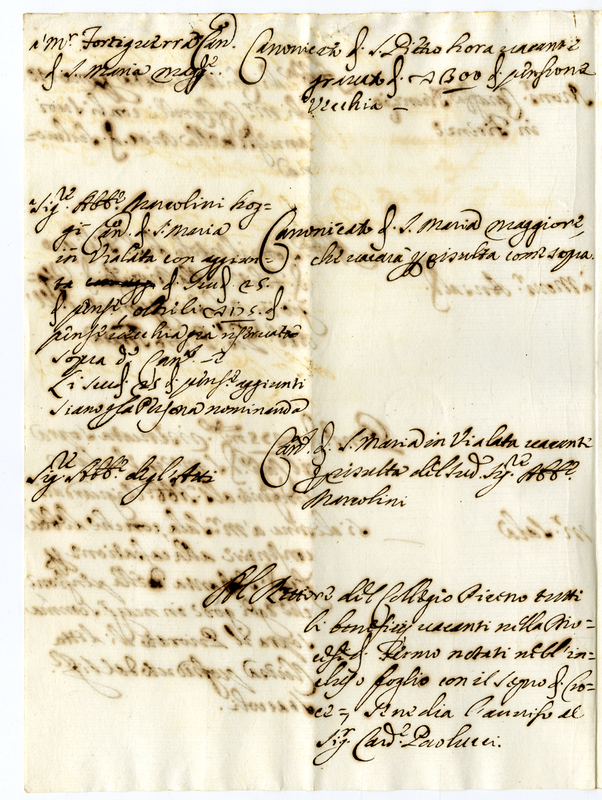 a Mr. Fortiguerra Can.
di S. Maria magg.re
Canonicato di S. Pietro hora vacante
gravato di 1300 di pensione
Vecchia –
Sig.re Abb.e Marcolini hog-
gi Can. di S. Maria
in Vialata con aggiun-
ta di Scudi 25.
di pens.e, oltre li 175. di
pens.e vecchia già riservata
sopra do. Can.to
Li scudi 25 di pens.e aggiunti
siano p la Persona nominanda
Canonicato di S. Maria maggiore,
che vacarà p risulta come sopra.
Sig.re Abb.e degl'Atti
Can.to di S. Maria in Vialata vacante
p risulta del sud.o Sig.re Abb.e
Marcolini
Al Rettore del Collegio Piceno tutti
li beneficij vacanti nella Dio-
cesi di Fermo notati nell'in-
cluso foglio con il segno di Cro-
ce, e se ne dia l'avviso al
Sig.r Card.e Paolucci.